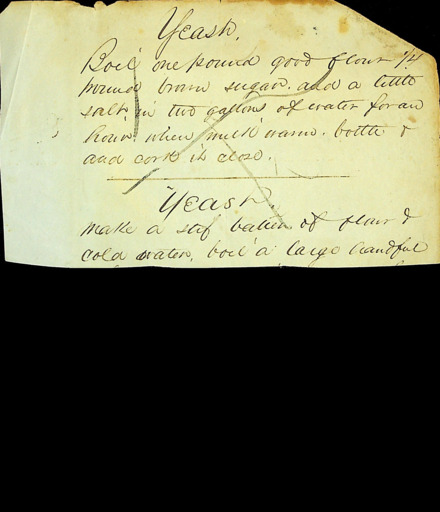 Yeast.
Boil one pound good flour 1/4
pound brown sugar. and a little
salt, in two gallons of water for an
hour. when milk warm. bottle &
and cork it close.
Yeast.
Make a stif batter of flour &
cold water, boil a large handful